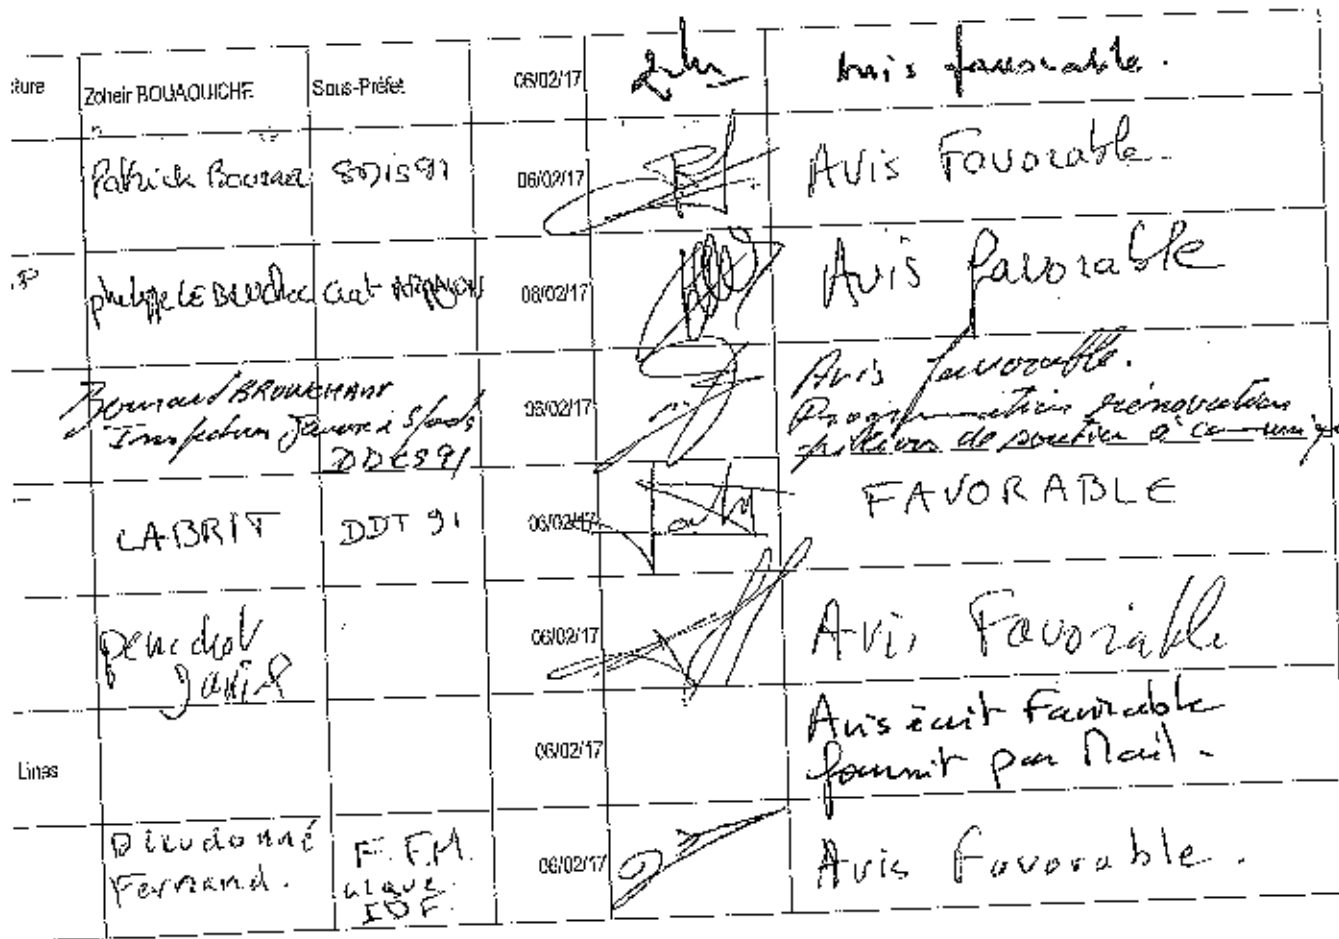 cture Zoheir BOUAOUICHE Sous-Préfet 06/02/17 Avis favorable.
Patrick SDIS91 06/02/17 Avis Favorable.
philippe LE 06/02/17 Avis favorable
Bernard BROUCHANT
Inspecteur Jeunesse & Sports
DDCS91
06/02/17
Avis favorable.
Programmation rénovation
piliers de soutien à
LABRIT DDT 91 06/02/17 FAVORABLE
06/02/17 Avis Favorable
Linas 06/02/17
Avis écrit Favorable
fournit par Mail -
Dieudonné
Fernand.
F.F.M.
Ligue
IDF.
06/02/17 Avis Favorable.